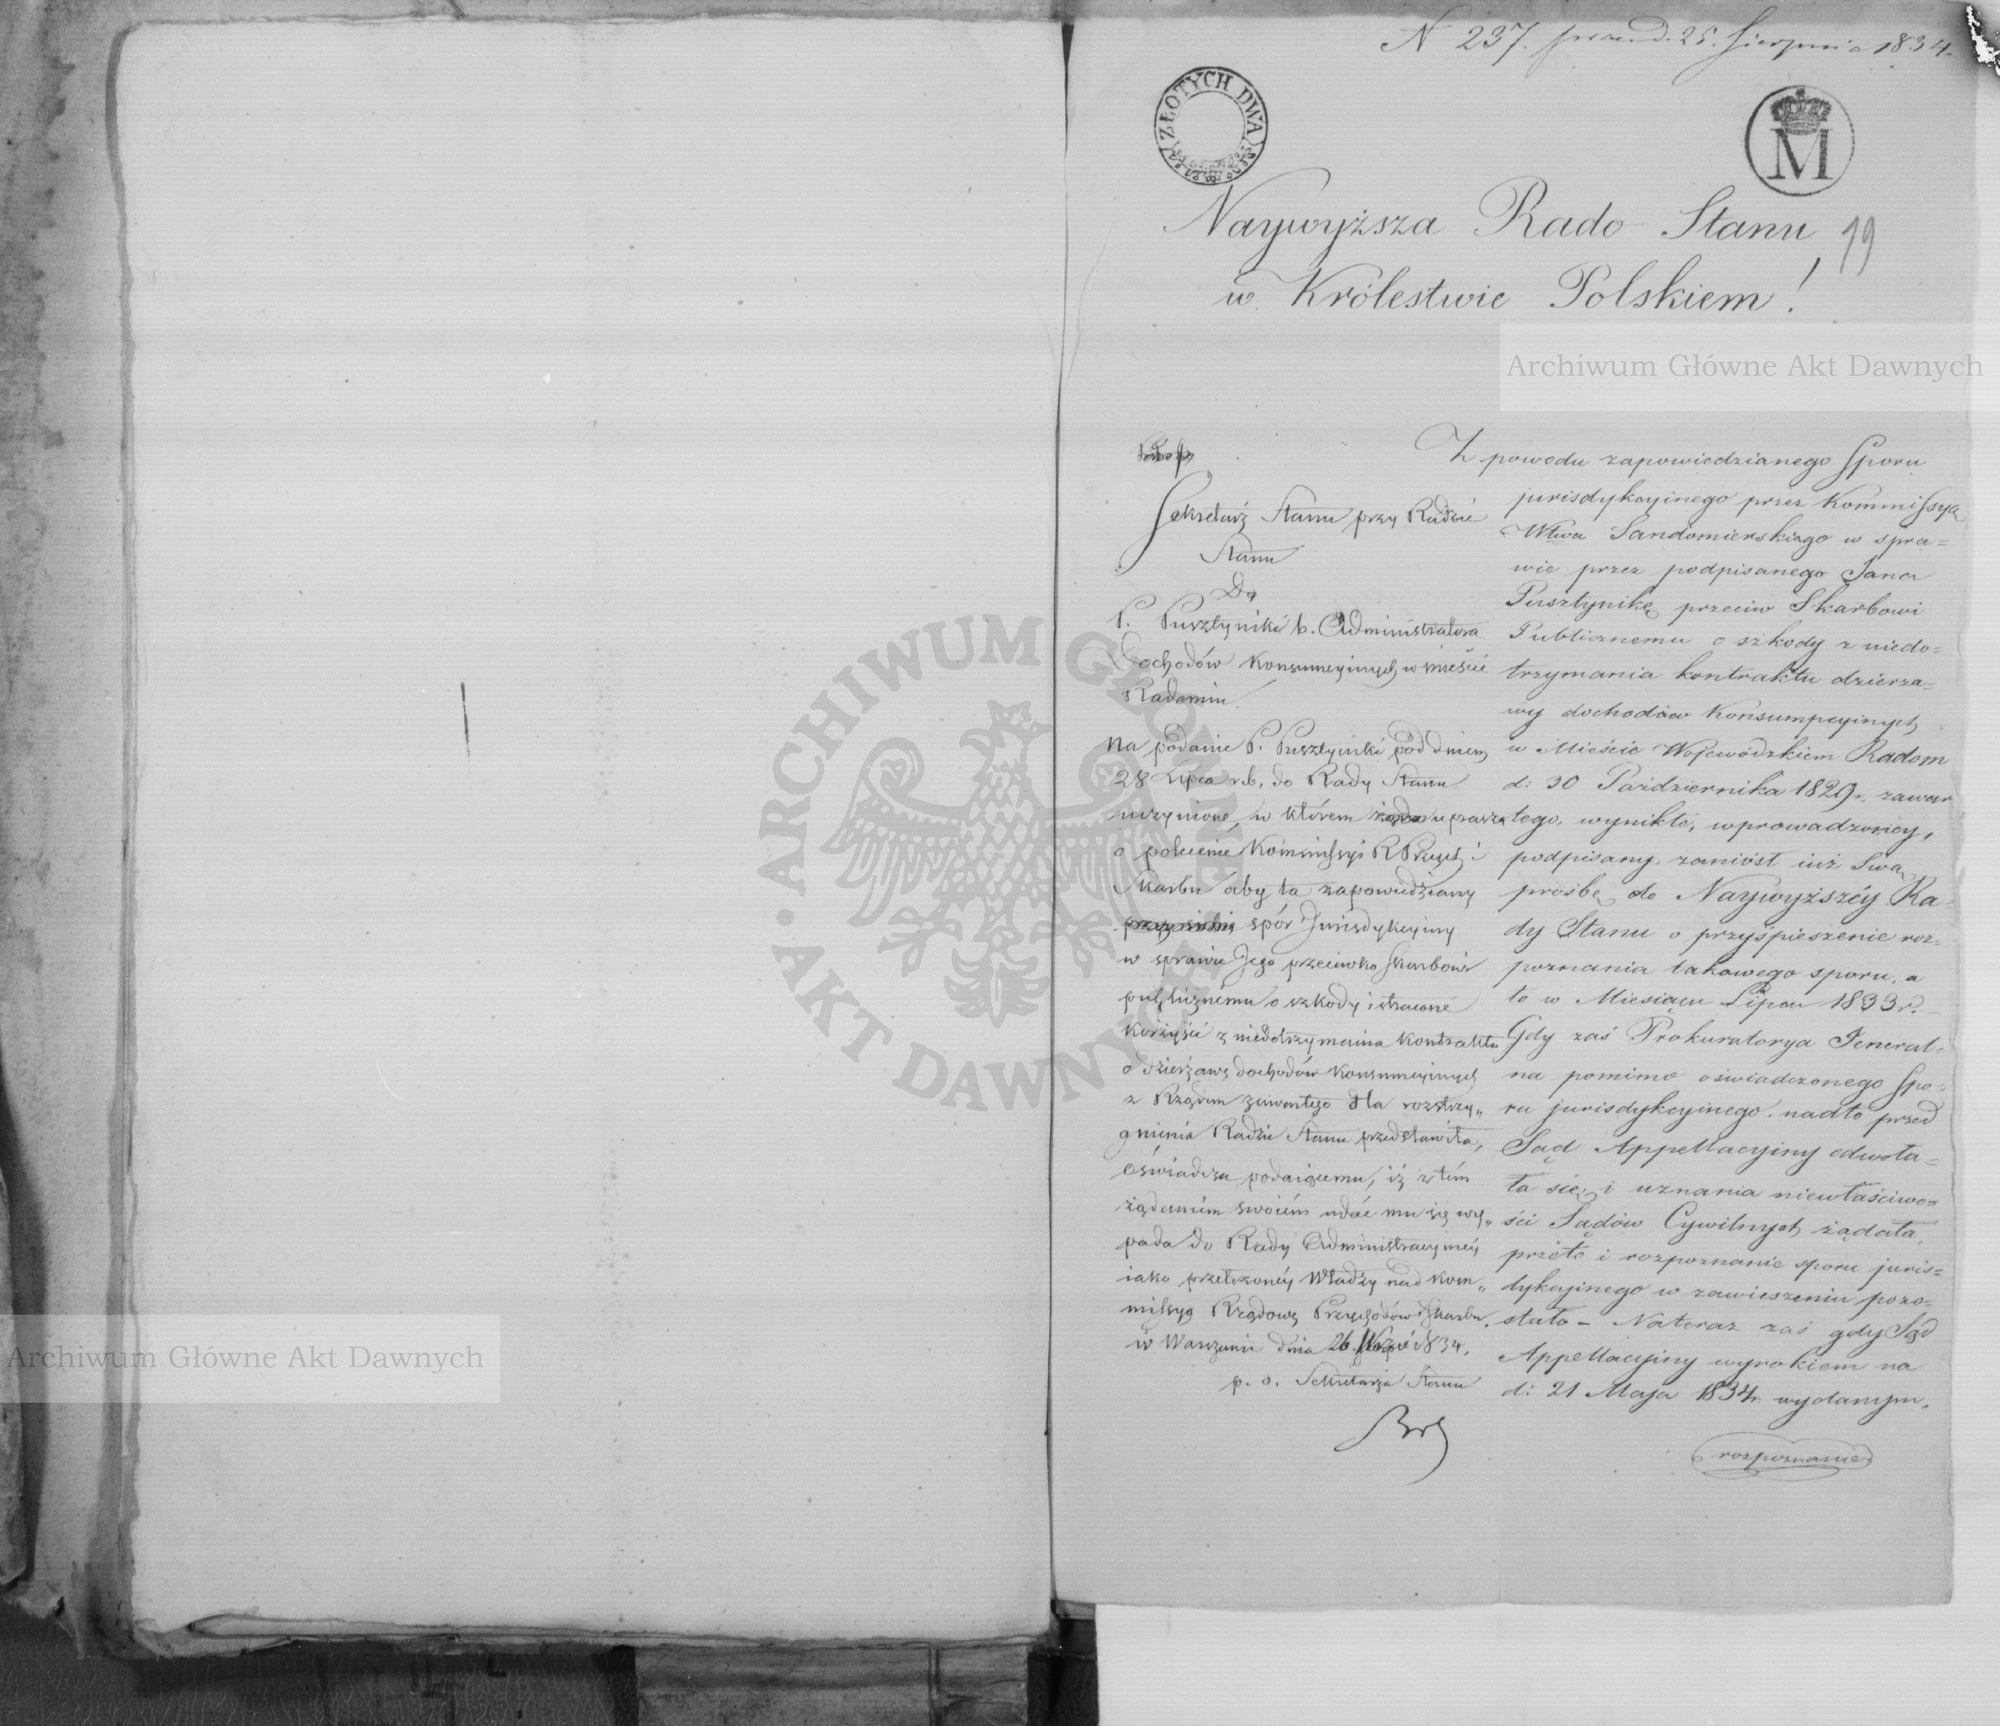 N 237. praes. d. 25. Sierpnia 1834.
ZŁOTYCH DWA
M
Naywyższa Rado Stanu
19
w Królestwie Polskiem!
Archiwum Główne Akt Dawnych
Sekretarz Stanu przy Radzie
Stanu
Do
P. Pusztyniki b. Administratora
Dochodów Konsumcyinych w mieście
Radomiu.
Na podanie P. Pusztyniki pod dniem
28 Lipca r.b. do Rady Stanu
uczynione, w którem żąda uprasza
o polecenie Kommissyi R. Przych: i
Skarbu aby ta zapowiedziany
spór Jurisdykcyiny
w sprawie Jego przeciwko Skarbowi
publicznému o szkody i stracone
korzyści z niedotrzymania Kontraktu
o dzierżawę dochodów konsumcyinych
z Rządem zawartego dla rozstrzy„
gnienia Radzie Stanu przedstawiła,
oświadcza podaiącemu, iż z tém
żądaniem swoiém udać mu się wy„
pada do Rady Administracyinéy
iako przełożonéy Władzy nad Kom„
missyą Rządową Przychodów i Skarbu.
w Warszawie dnia 26. 1834.
p. o. Sekretarza Stanu
Z powodu zapowiedzianego Sporu
jurisdykcyinego przez Kommissyą
Wtwa Sandomierskiego w spra=
wie przez podpisanego Jana
Pusztynikę przeciw Skarbowi
Publicznemu o szkody z niedo=
trzymania kontraktu dzierża=
wy dochodów Konsumpcyinych
w Mieście Wojewódzkiem Radom
d: 30 Października 1829 r. zawar
tego, wynikłe, wprowadzoney,
podpisany zaniósł iuż Swą
prośbę do Naywyższéy Ra=
dy Stanu o przyśpieszenie roz=
poznania takowego sporu, a
to w Miesiącu Lipcu 1833 r.
Gdy zaś Prokuratorya Jeneral=
na pomimo oświadczonego Spo=
ru jurisdykcyinego nadto przed
Sąd Appellacyiny odwoła=
ła się i uznania niewłaściwo=
ści Sądów Cywilnych żądała,
przeto i rozpoznanie sporu juris=
dykcyinego w zawieszeniu pozo=
stało – Nateraz zaś gdy Sąd
Appellacyiny wyrokiem na
d: 21 Maja 1834 r. wydanym,
rozpoznanie
Archiwum Główne Akt Dawnych
ARCHIWUM GŁÓWNE AKT DAWNYCH